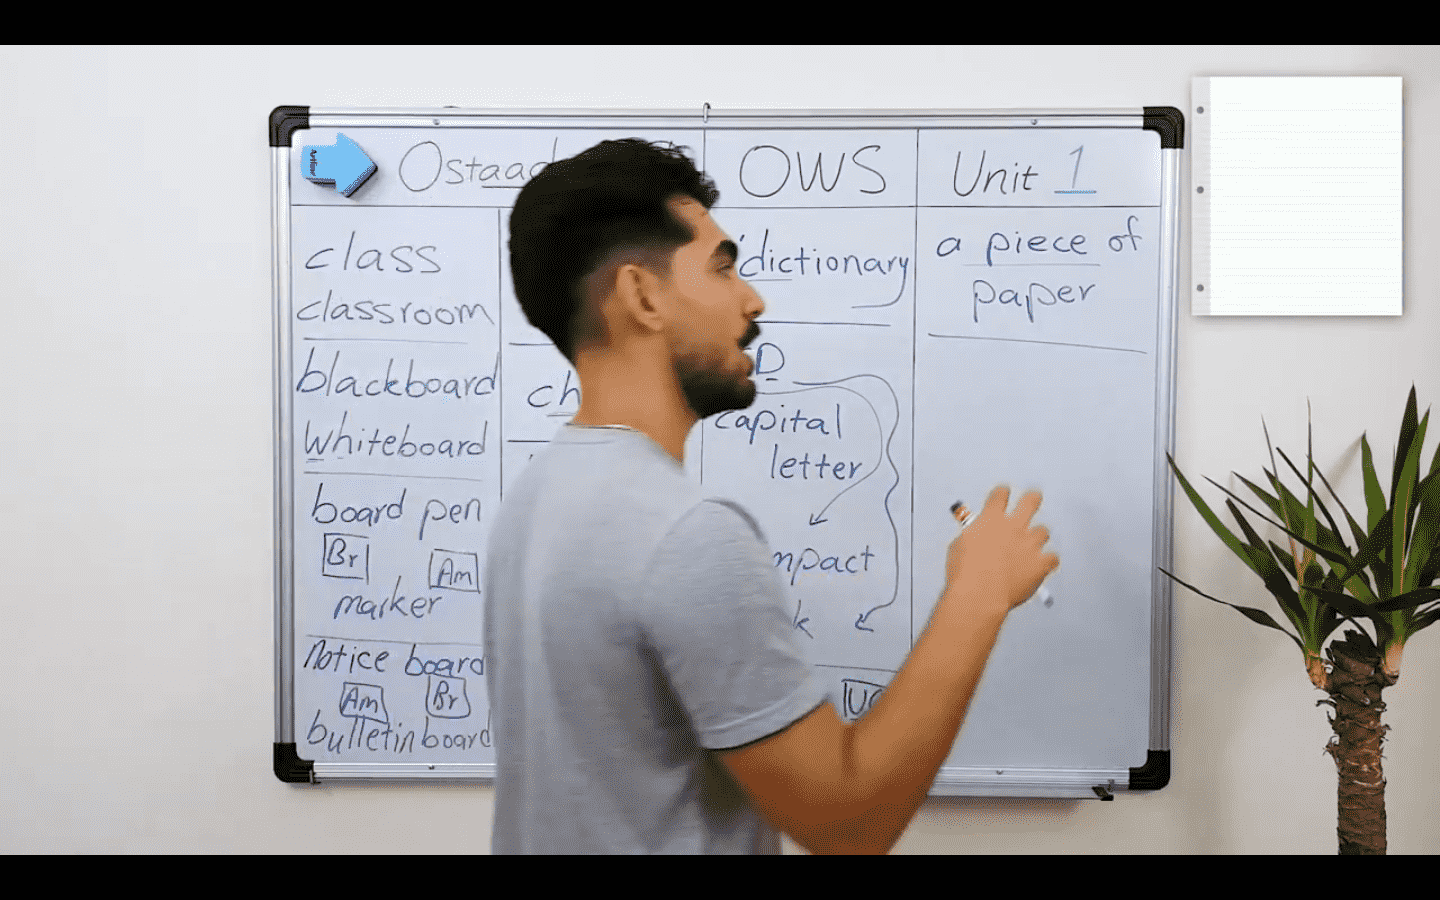 OWS
Unit 1
class
classroom
blackboard
whiteboard
board pen
Br
Am
marker
notice board
Am
Br
bulletin board
dictionary
D
capital
letter
a piece of
paper